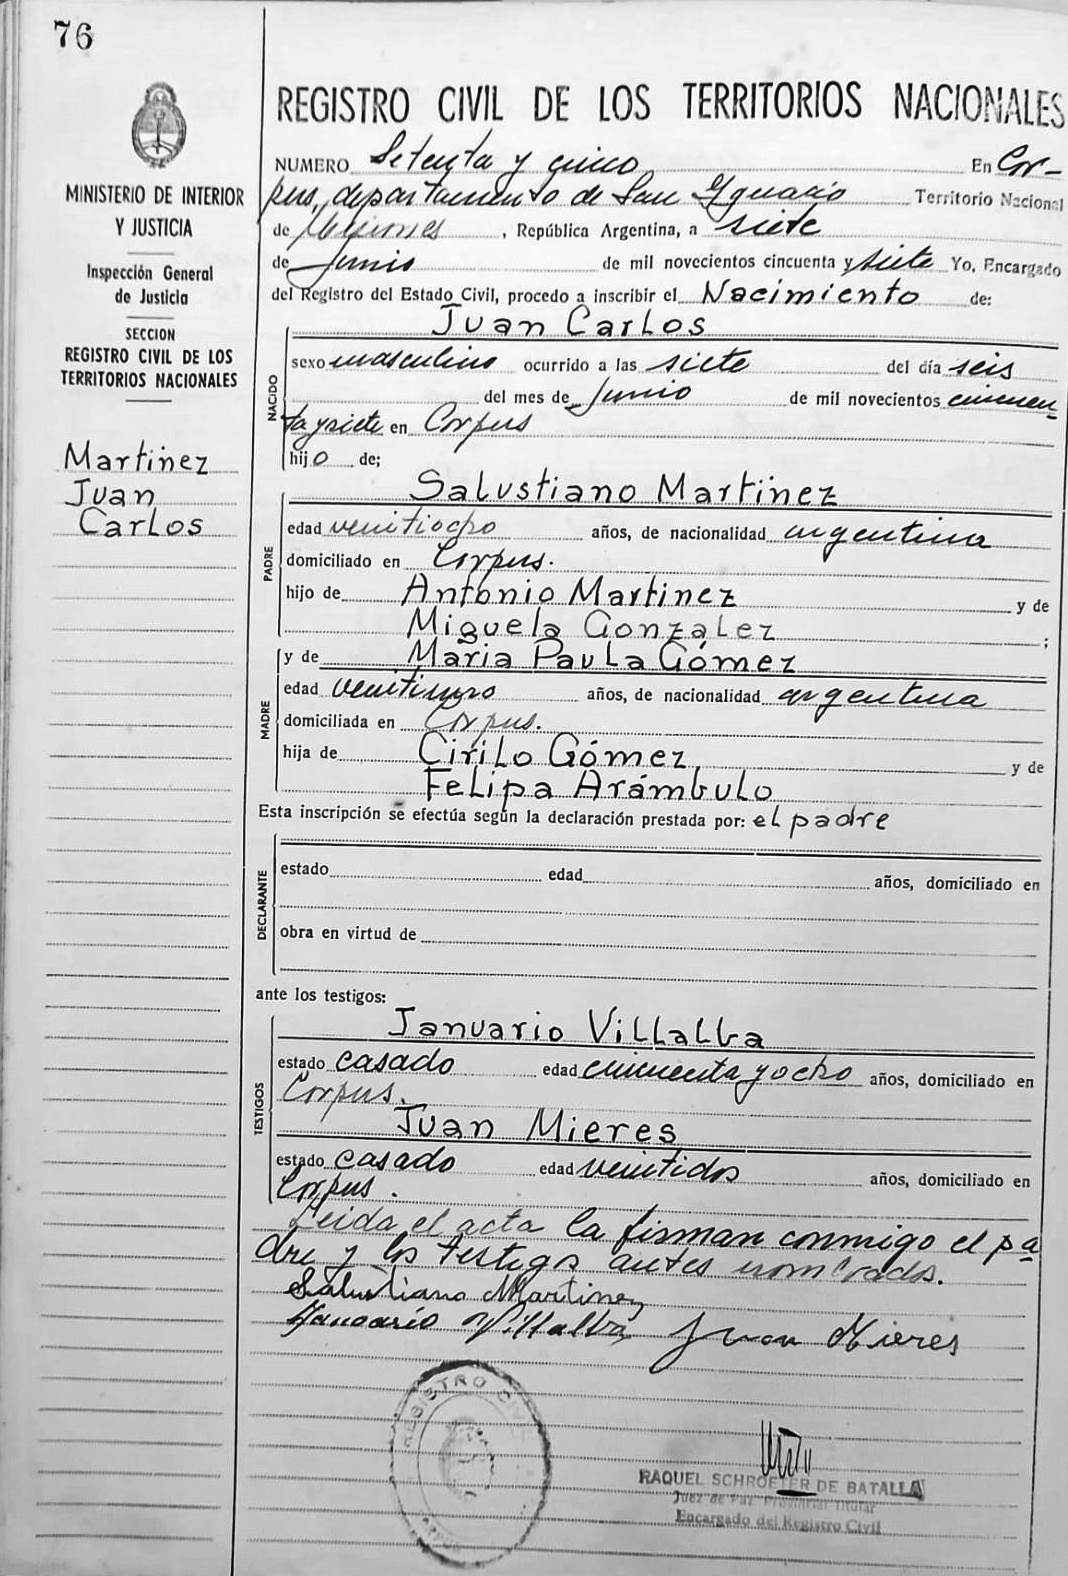 76
REGISTRO CIVIL DE LOS TERRITORIOS NACIONALES
MINISTERIO DE INTERIOR
Y JUSTICIA
Inspección General
de Justicia
SECCION
REGISTRO CIVIL DE LOS
TERRITORIOS NACIONALES
Martinez
Juan
Carlos
NUMERO Setenta y cinco En Cor-
pus, departamento de San Ygnacio Territorio Nacional
de Misiones, República Argentina, a siete
de Junio de mil novecientos cincuenta y siete Yo, Encargado
del Registro del Estado Civil, procedo a inscribir el Nacimiento de:
NACIDO
Juan Carlos
sexo masculino ocurrido a las siete del día seis
del mes de Junio de mil novecientos cincuen
ta y siete en Corpus
hijo de;
PADRE
Salustiano Martinez
edad veintiocho años, de nacionalidad argentina
domiciliado en Corpus.
hijo de Antonio Martinez y de
Miguela Gonzalez ;
MADRE
y de Maria Paula Gómez
edad veintiuno años, de nacionalidad argentina
domiciliada en Corpus.
hija de Cirilo Gómez y de
Felipa Arámbulo
Esta inscripción se efectúa según la declaración prestada por: el padre
DECLARANTE
estado edad años, domiciliado en
obra en virtud de
ante los testigos:
TESTIGOS
Januario Villalba
estado casado edad cincuenta y ocho años, domiciliado en
Corpus.
Juan Mieres
estado casado edad veintidos años, domiciliado en
Corpus.
Leida el acta la firman conmigo el pa
dre y los testigos antes nombrados.
Salustiano Martinez
Januario Villalba Juan Mieres
REGISTRO CIVIL
RAQUEL SCHROETER DE BATALLA
Juez de Paz Provincial Titular
Encargado del Registro Civil